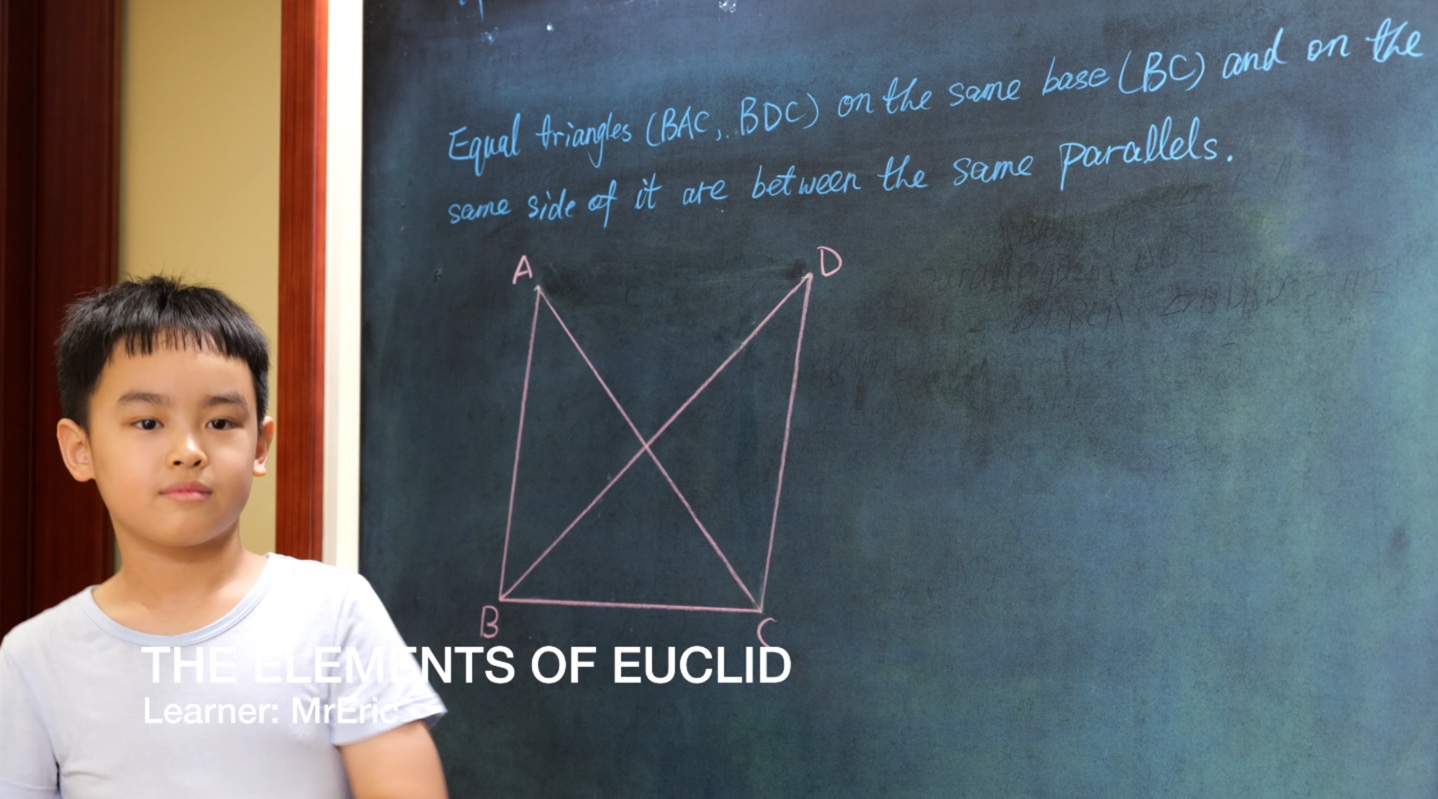 Equal triangles (BAC, BDC) on the same base (BC) and on the
same side of it are between the same parallels.
A
D
B
C
THE ELEMENTS OF EUCLID
Learner: MrEric